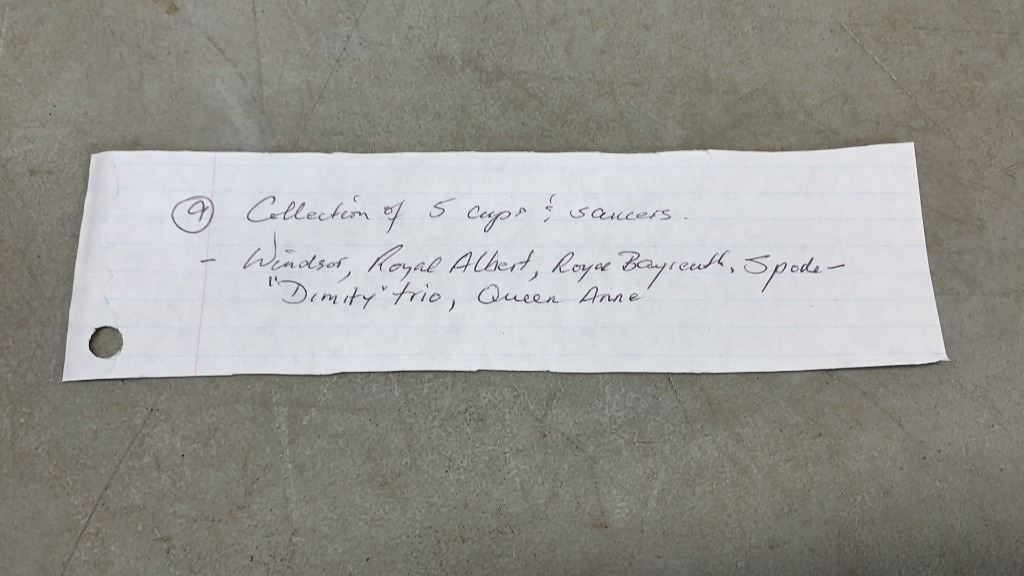 9 Collection of 5 cups & saucers.
- Windsor, Royal Albert, Royal Bayreuth, Spode -
"Dimity" trio, Queen Anne